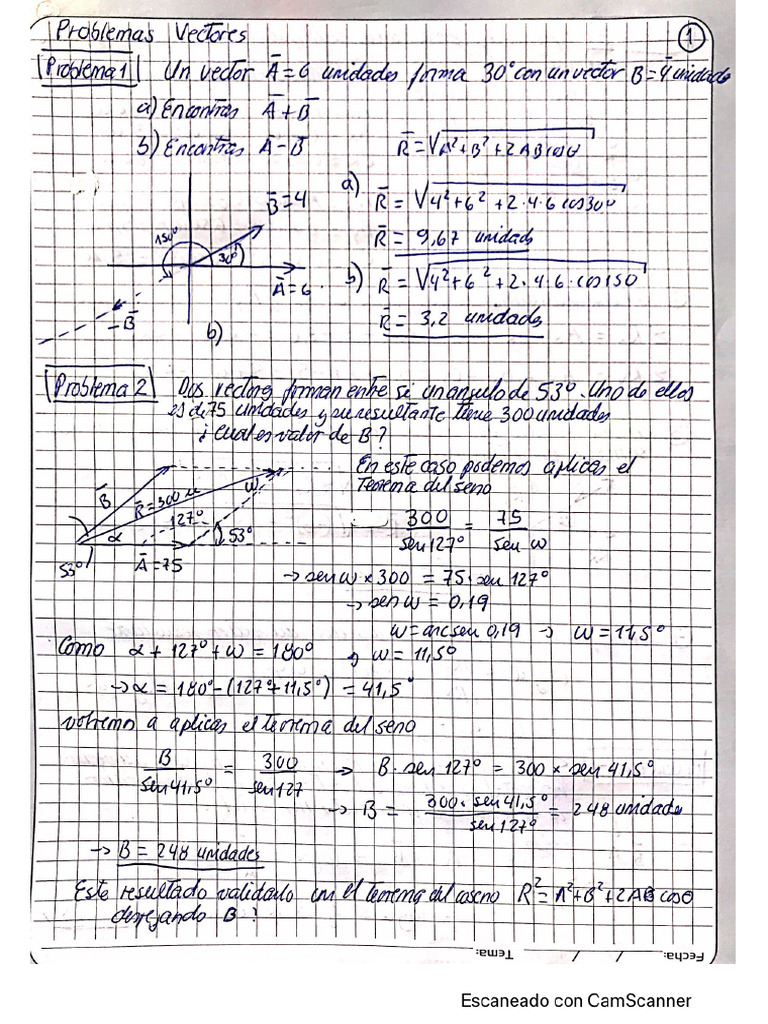 Problemas Vectores
1
Problema 1 Un vector A̅ = 6 unidades forma 30° con un vector B = 4̅ unidades
a) Encontrar A̅ + B̅
b) Encontrar A̅ - B̅ R̅ = √A² + B² + 2ABcosθ
B̅=4
a) R̅ = √4² + 6² + 2·4·6 cos30°
150°
30°
R̅ = 9,67 unidads
A̅=6
b) R̅ = √4² + 6² + 2·4·6·cos150
-B̅
R̅ = 3,2 unidades
b)
Problema 2 Dos vectores forman entre si un angulo de 53°. Uno de ellos
es de 75 unidades y su resultante tiene 300 unidades
¿Cual es valor de B?
En este caso podemos aplicar el
Teorema del seno
B̅
R̅=300 u
ω
127°
α
53°
53°
A̅=75
300/sen127° = 75/sen ω
→ sen ω × 300 = 75·sen 127°
→ sen ω = 0,19
ω = arcsen 0,19 → ω = 11,5°
Como α + 127° + ω = 180° y ω = 11,5°
→ α = 180° - (127° + 11,5°) = 41,5°
volvemos a aplicar el teorema del seno
B/sen 41,5° = 300/sen 127 → B · sen 127° = 300 × sen 41,5°
→ B = 300·sen 41,5°/sen 127° = 248 unidades
→ B = 248 unidades
Este resultado validarlo con el teorema del coseno R² = A² + B² + 2AB cosθ
despejando B?
Tema:
Fecha: / /
Escaneado con CamScanner